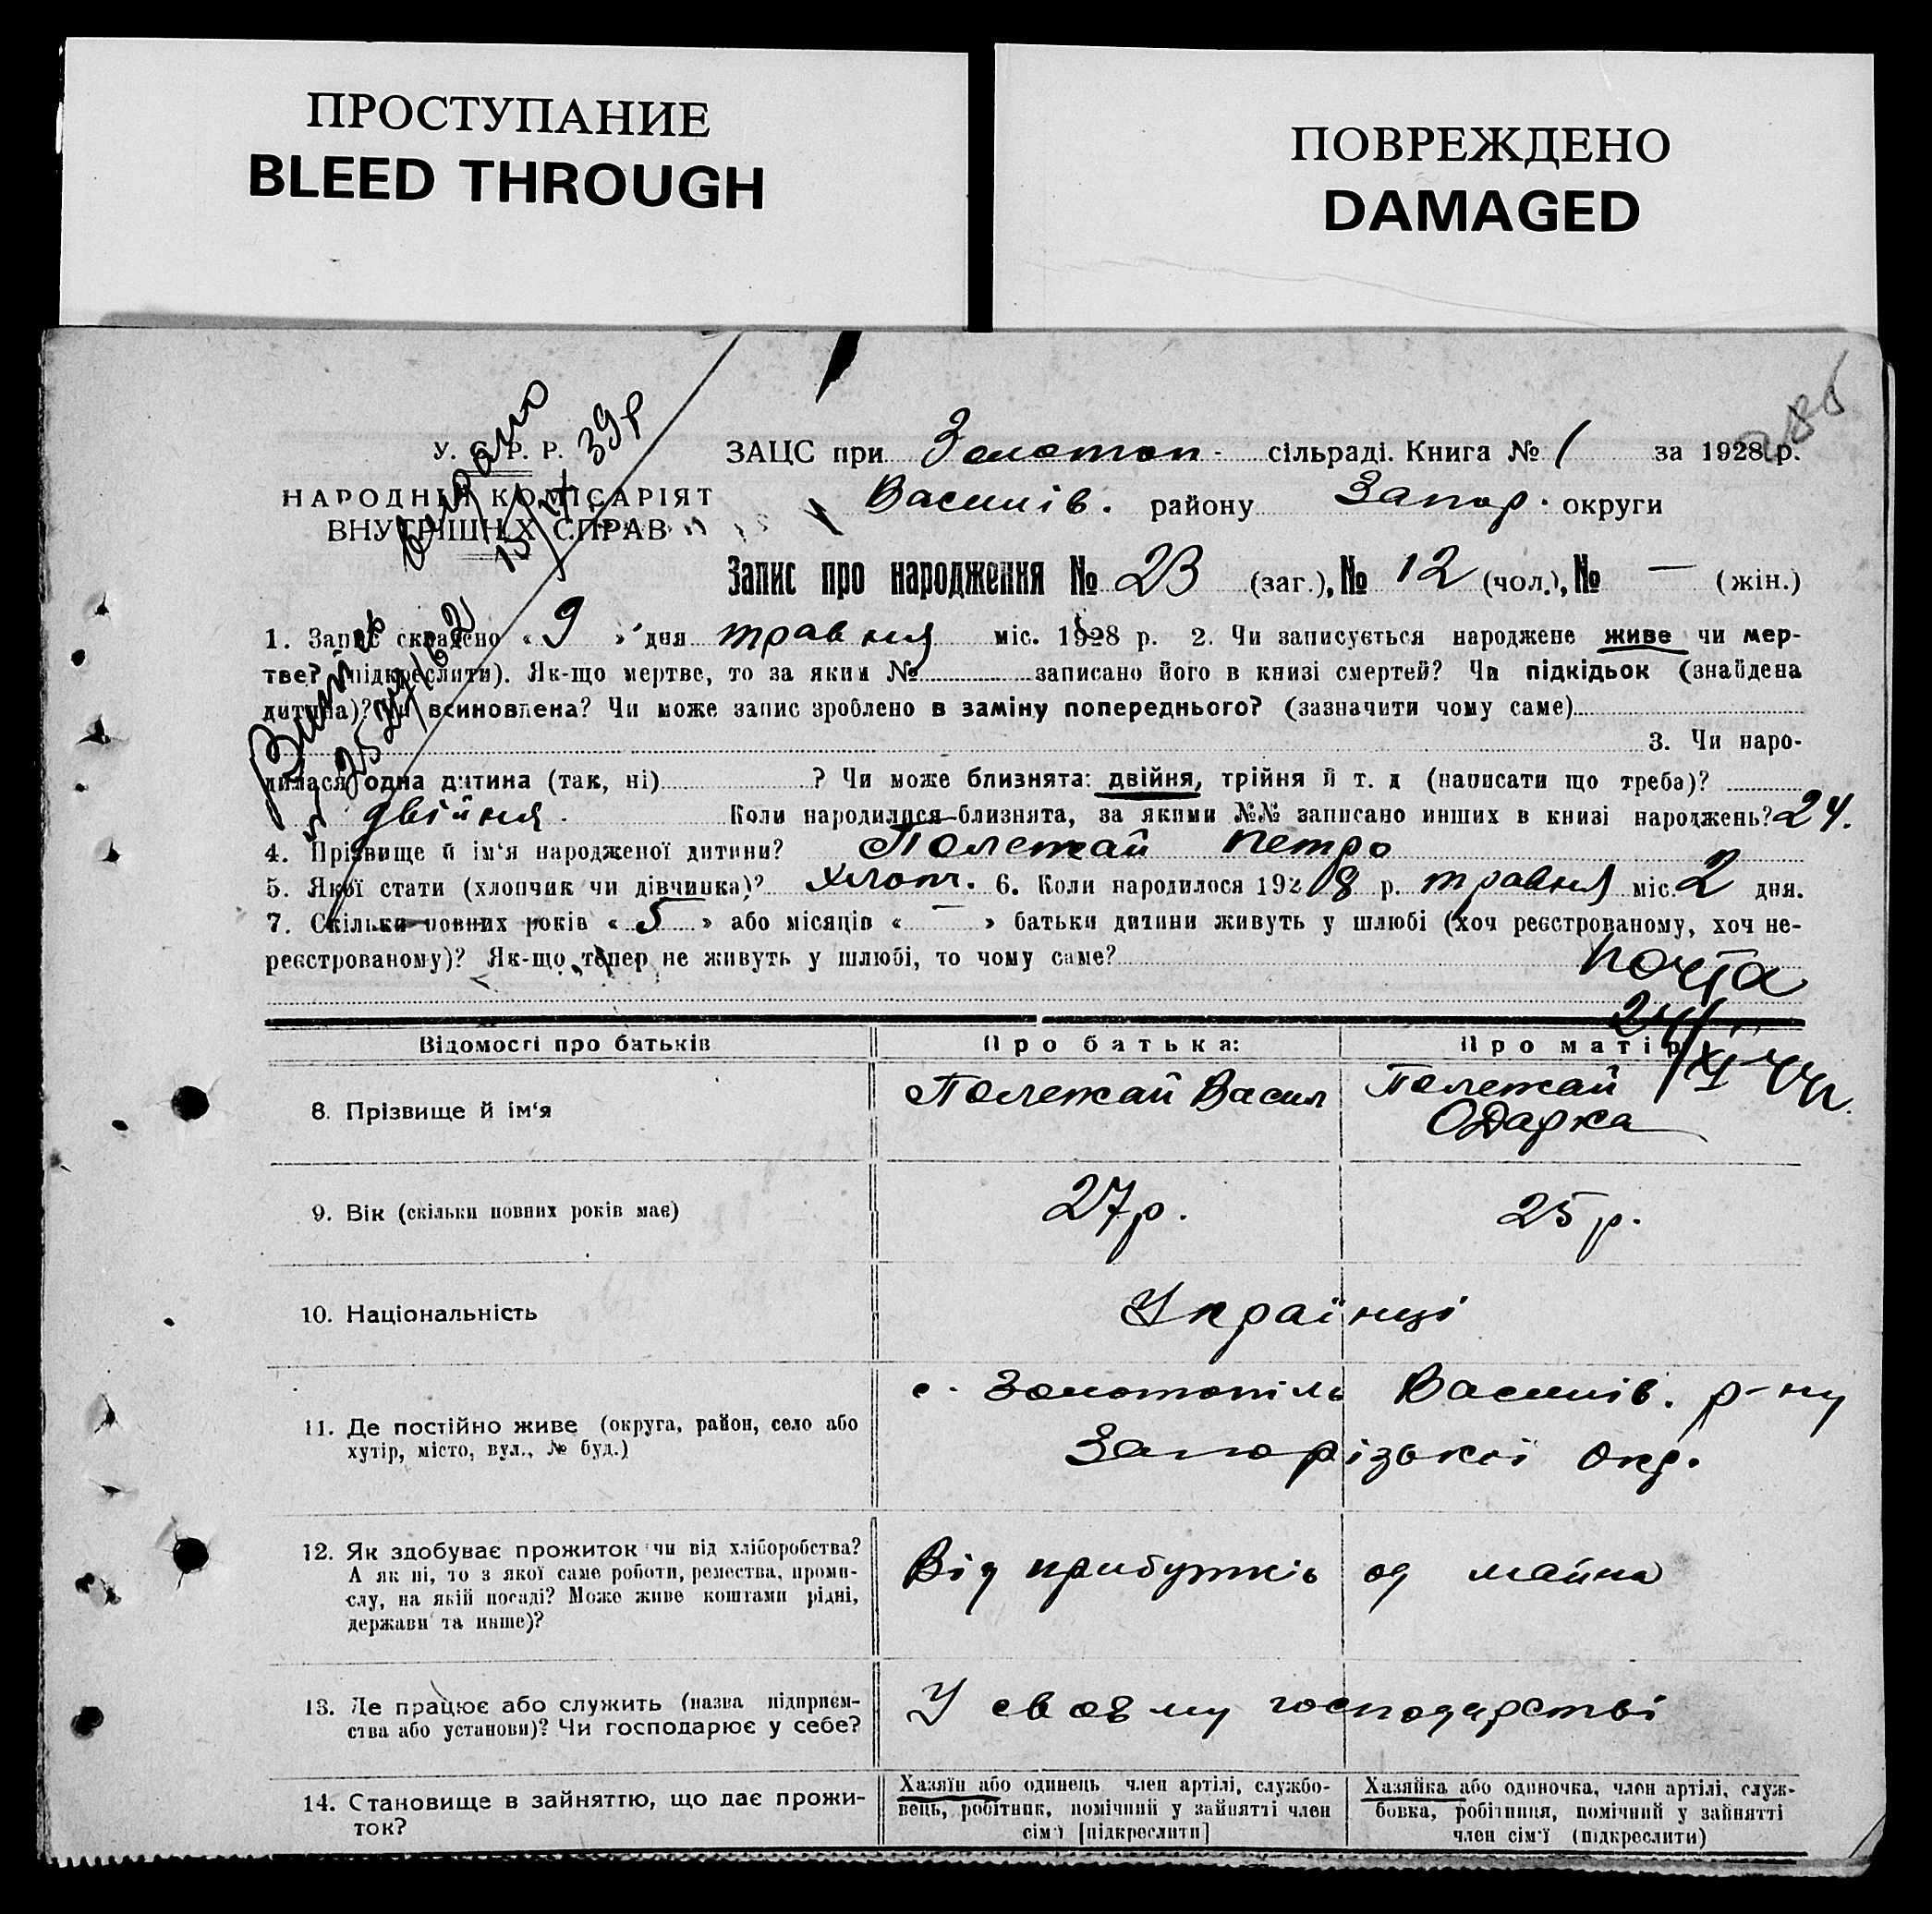 ПРОСТУПАНИЕ
BLEED THROUGH
ПОВРЕЖДЕНО
DAMAGED
У. С. Р. Р.
НАРОДНІЙ КОМІСАРІЯТ
ВНУТРІШНІХ СПРАВ
ЗАЦС при Золотоп. сільраді. Книга № 1 за 1928 р.
Василів. району Запор. округи
Запис про народження № 23 (заг.), № 12 (чол.), № — (жін.)
1. Запис складено « 9 » дня травня міс. 1928 р. 2. Чи записується народжене живе чи мер-
тве? (підкреслити). Як-що мертве, то за яким № записано його в книзі смертей? Чи підкідьок (знайдена
дитина)? Чи всиновлена? Чи може запис зроблено в заміну попереднього? (зазначити чому саме)
3. Чи наро-
дилася одна дитина (так, ні) ? Чи може близнята: двійня, трійня й т. д (написати що треба)?
двійня. Коли народилися близнята, за якими №№ записано инших в книзі народжень? 24.
4. Прізвище й ім'я народженої дитини? Полежай Петро
5. Якої стати (хлопчик чи дівчинка)? хлопч. 6. Коли народилося 1928 р. травня міс. 2 дня.
7. Скільки повних років « 5 » або місяців « — » батьки дитини живуть у шлюбі (хоч реєстрованому, хоч не-
реєстрованому)? Як-що тепер не живуть у шлюбі, то чому саме?
почта
Відомості про батьків
Про батька:
Про матір
8. Прізвище й ім'я
Полежай Васил
Полежай
Одарка
9. Вік (скільки повних років має)
27 р.
25 р.
10. Національність
Українці
11. Де постійно живе (округа, район, село або
хутір, місто, вул., № буд.)
с. Золотопіль Василів. р-ну
Запорізької окр.
12. Як здобуває прожиток чи від хліборобства?
А як ні, то з якої саме роботи, ремества, проми-
слу, на якій посаді? Може живе коштами рідні,
держави та инше)?
Від прибутків од майна
13. Де працює або служить (назва підприєм-
ства або установи)? Чи господарює у себе?
У своєму господарстві
14. Становище в зайняттю, що дає прожи-
ток?
Хазяїн або одинець, член артілі, службо-
вець, робітник, помічний у зайнятті член
сім'ї [підкреслити]
Хазяйка або одиночка, член артілі, служ-
бовка, робітниця, помічний у зайнятті
член сім'ї (підкреслити)